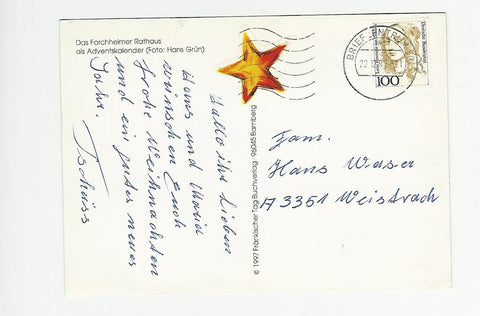 Das Forchheimer Rathaus
als Adventskalender (Foto: Hans Grün)
Hallo ihr Lieben
Hans und Maria
wünschen Euch
frohe Weihnachten
und ein gutes neues
Jahr.
Tschüss
© 1997 Fränkischer Tag Buchverlag · 96045 Bamberg
100
Fam.
Hans Waser
A 3351 Weistrach